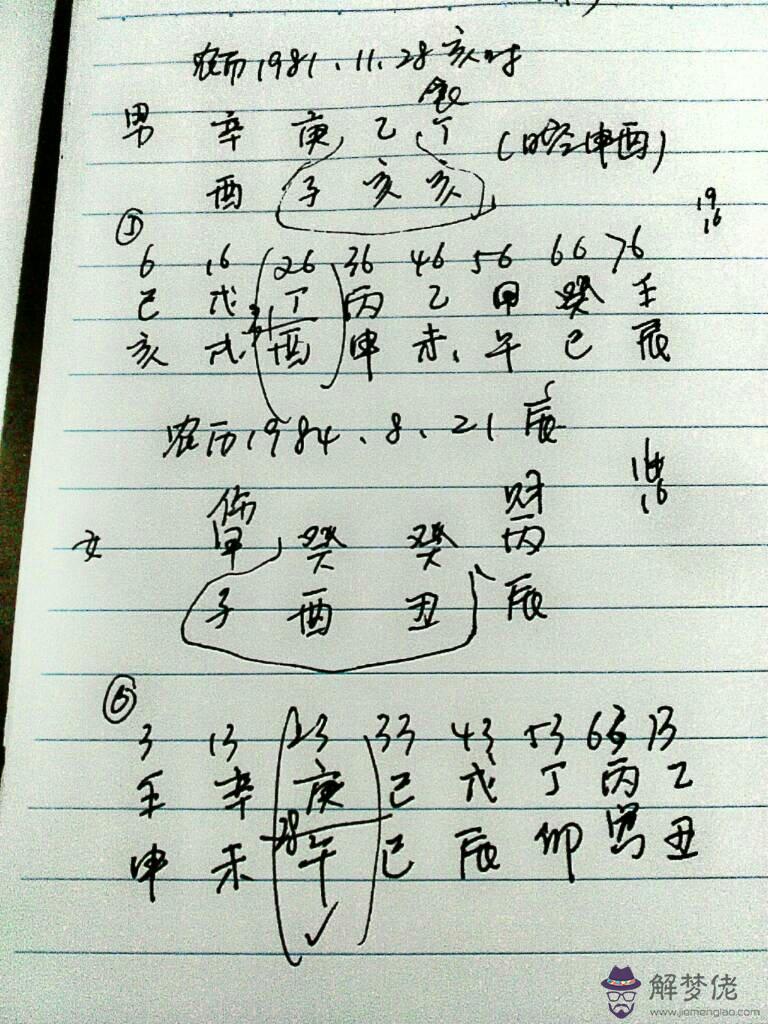 农历1981.11.28亥时
食
男 辛 庚 乙 丁 (时空申酉)
酉 子 亥 亥
19
16
①
6 16 26 36 46 56 66 76
己 戊 丁 丙 乙 甲 癸 壬
亥 戌 酉 申 未 午 巳 辰
农历1984.8.21辰
16
伤 财
女 甲 癸 癸 丙
子 酉 丑 辰
3 13 23 33 43 53 63 73
壬 辛 庚 己 戊 丁 丙 乙
申 未 28 午 巳 辰 卯 寅 丑
解梦佬
www.jiemenglao.com